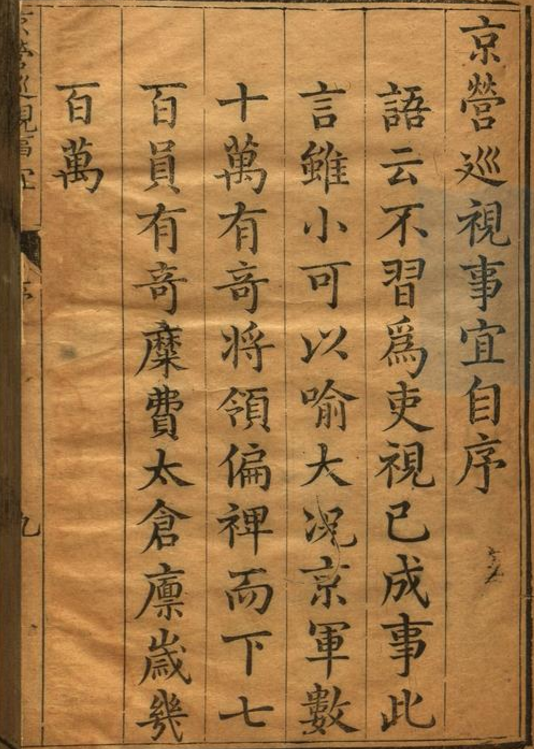 京營巡視事宜自序
語云不習爲吏視已成事此
言雖小可以喻大况京軍數
十萬有奇将領偏裨而下七
百員有奇糜費太倉廪歲幾
百萬
京營巡視事宜
序
九